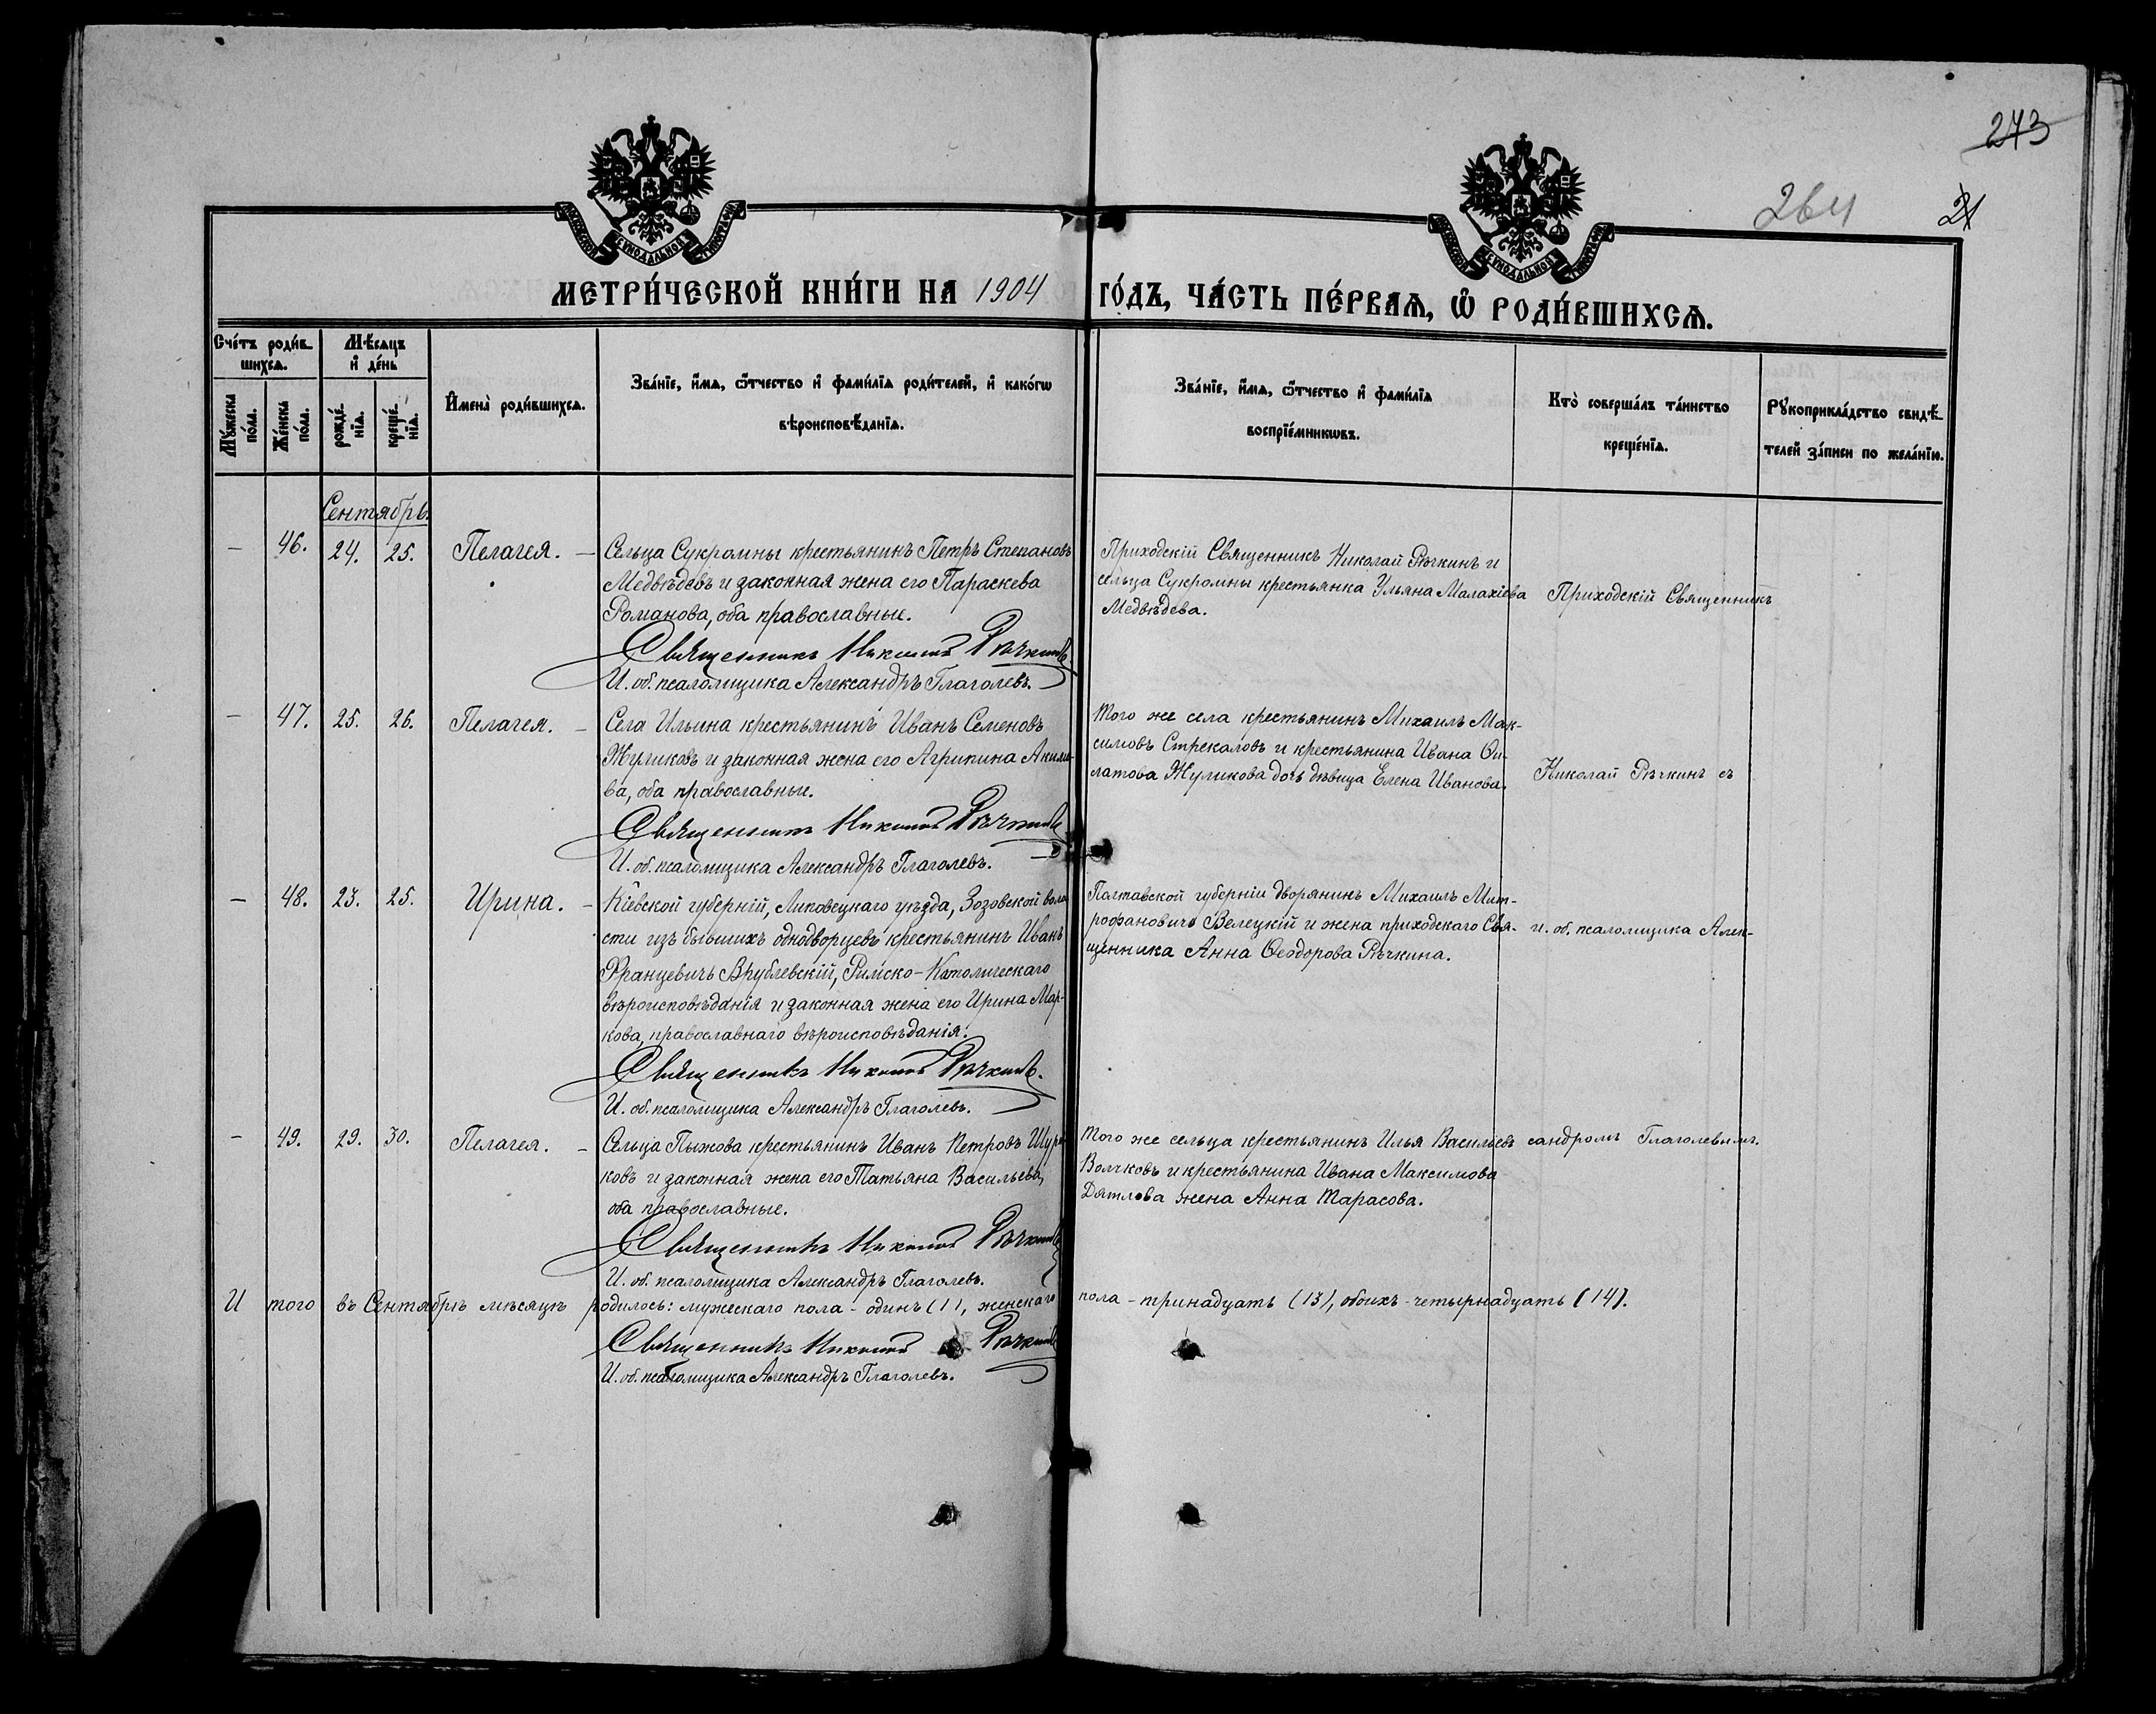 273
264
21
СѴНОДАЛЬНОЙ
СѴНОДАЛЬНОЙ
МЕТРИ́ЧЕСКОЙ КНИ́ГИ НА 1904
ГО́ДЪ, ЧА́СТЬ ПЕ́РВАѦ, Ѡ҆ РОДИ́ВШИХСѦ.
Сче́тъ роди́в-
шихсѧ.
Мѣ́сѧцъ
и҆ де́нь
Мꙋ́жеска
по́ла.
Же́нска
по́ла.
рожде́-
нїѧ.
креще́-
нїѧ.
И҆мена̀ роди́вшихсѧ.
Зва́нїе, и҆́мѧ, ѻ҆́тчество и҆ фами́лїѧ роди́телей, и҆ како́гѡ
вѣроисповѣ́данїѧ.
Зва́нїе, и҆́мѧ, ѻ҆́тчество и҆ фами́лїѧ
воспрїе́мникѡвъ.
Кто̀ соверша́лъ та́инство
креще́нїѧ.
Рꙋкоприкла́дство свидѣ́-
телей за́писи по жела́нїю.
Сентябрь.
– 46. 24. 25. Пелагея. –
Сельца Сукромны крестьянинъ Петръ Степановъ
Медвѣдевъ и законная жена его Параскева
Романова, оба православные.
Священникъ Николай Рѣчкинъ.
И. об. псаломщика Александръ Глаголевъ.
Приходскій Священникъ Николай Рѣчкинъ и
сельца Сукромны крестьянка Ульяна Малахіева
Медвѣдева.
Приходскій Священникъ
– 47. 25. 26. Пелагея. –
Села Ильина крестьянинъ Иванъ Семеновъ
Жуликовъ и законная жена его Агрипина Акимо-
ва, оба православные.
Священникъ Николай Рѣчкинъ
И. об. псаломщика Александръ Глаголевъ.
Того же села крестьянинъ Михаилъ Мак-
симовъ Стрекаловъ и крестьянина Ивана Фи-
латова Жуликова дочь дѣвица Елена Иванова.
Николай Рѣчкинъ съ
– 48. 23. 25. Ирина. –
Кіевской губерніи, Липовецкаго уѣзда, Зозовской воло-
сти изъ бывшихъ однодворцевъ крестьянинъ Иванъ
Францевичъ Врублевскій, Римско-Католическаго
вѣроисповѣданія и законная жена его Ирина Мар-
кова, православнаго вѣроисповѣданія.
Священникъ Николай Рѣчкинъ.
И. об. псаломщика Александръ Глаголевъ.
Полтавской губерніи дворянинъ Михаилъ Мит-
рофановичъ Велецкій и жена приходскаго Свя-
щенника Анна Ѳеодорова Рѣчкина.
и. об. псаломщика Алек-
– 49. 29. 30. Пелагея. –
Сельца Пыжова крестьянинъ Иванъ Петровъ Шур-
ковъ и законная жена его Татьяна Васильева,
оба православные.
Священникъ Николай Рѣчкинъ
И. об. псаломщика Александръ Глаголевъ.
Того же сельца крестьянинъ Илья Васильевъ
Волчковъ и крестьянина Ивана Максимова
Дятлова жена Анна Тарасова.
сандромъ Глаголевымъ.
Итого въ Сентябрѣ мѣсяцѣ родилось: мужескаго пола – одинъ (1), женскаго
пола – тринадцать (13), обоихъ – четырнадцать (14).
Священникъ Николай Рѣчкинъ
И. об. псаломщика Александръ Глаголевъ.